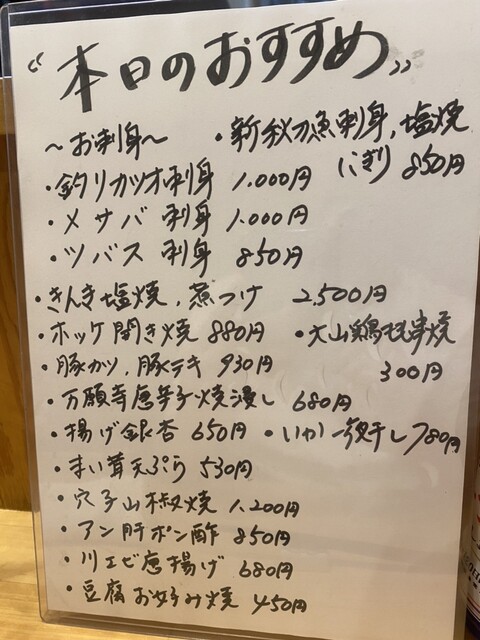 “本日のおすすめ”
〜お刺身〜 ・新秋刀魚刺身、塩焼
にぎり 850円
・釣りカツオ刺身 1.000円
・〆サバ刺身 1.000円
・ツバス刺身 850円
・きんき塩焼、煮つけ 2,500円
・ホッケ開き焼 880円 ・大山鶏もも串焼
300円
・豚カツ、豚テキ 930円
・万願寺唐辛子焼浸し 680円
・揚げ銀杏 650円 ・いか一夜干し 780円
・まい茸天ぷら 530円
・穴子山椒焼 1.200円
・アン肝ポン酢 850円
・川エビ唐揚げ 680円
・豆腐お好み焼 450円